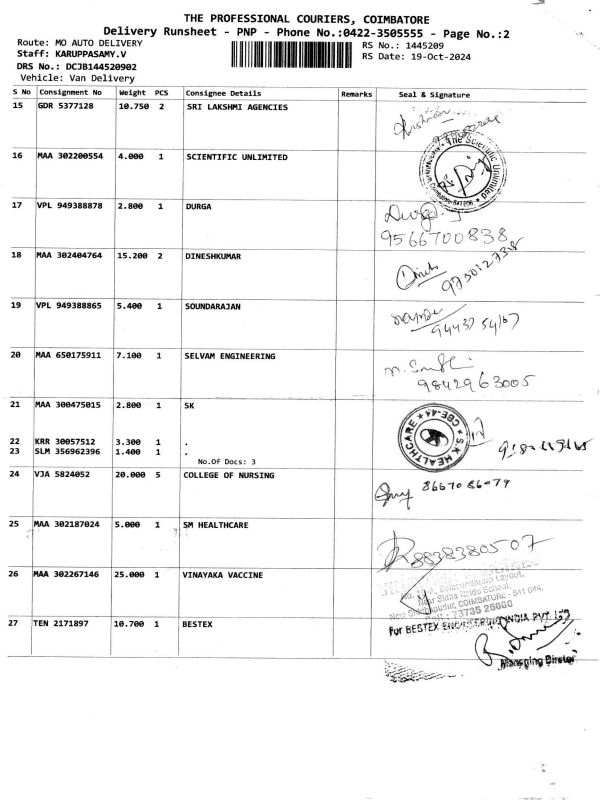 THE PROFESSIONAL COURIERS, COIMBATORE
Delivery Runsheet - PNP - Phone No.:0422-3505555 - Page No.:2
Route: MO AUTO DELIVERY
RS No.: 1445209
Staff: KARUPPASAMY.V
RS Date: 19-Oct-2024
DRS No.: DCJB144520902
Vehicle: Van Delivery
S No Consignment No Weight PCS Consignee Details Remarks Seal & Signature
15 GDR 5377128 10.750 2 SRI LAKSHMI AGENCIES
16 MAA 302200554 4.000 1 SCIENTIFIC UNLIMITED
The Scientific Unlimited
17 VPL 949388878 2.800 1 DURGA
Durga
9566700838
18 MAA 302404764 15.200 2 DINESHKUMAR
Dinesh
19 VPL 949388865 5.400 1 SOUNDARAJAN
9443754167
20 MAA 650175911 7.100 1 SELVAM ENGINEERING
9842963005
21 MAA 300475015 2.800 1 SK
S.K HEALTHCARE CBE-44
22 KRR 30057512 3.300 1 .
23 SLM 356962396 1.400 1 .
No.Of Docs: 3
24 VJA 5824052 20.000 5 COLLEGE OF NURSING
8667086079
25 MAA 302187024 5.000 1 SM HEALTHCARE
8838380507
26 MAA 302267146 25.000 1 VINAYAKA VACCINE
Balasundaram Layout,
Near Naidu School,
COIMBATORE - 641 044.
73735 25000
27 TEN 2171897 10.700 1 BESTEX
For BESTEX INDIA PVT LTD
Managing Director